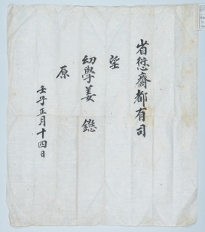 省愆齋都有司
望
幼學姜𨯶
原
壬子正月十四日